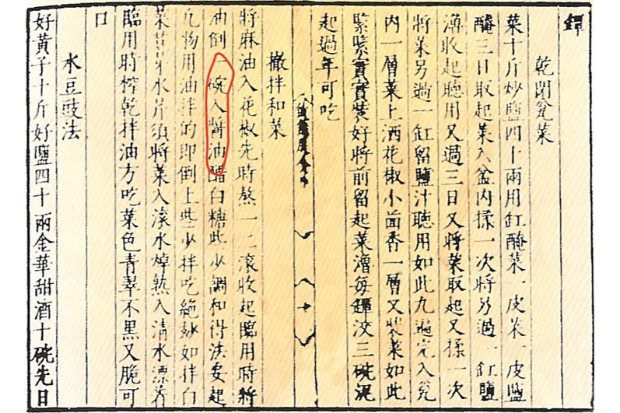 鐔
乾閉瓮菜
菜十斤炒鹽四十兩用缸醃菜一皮菜一皮鹽
醃三日取起菜入盆內揉一次將另過一缸鹽
滷收起聽用又過三日又將菜取起又揉一次
將菜另過一缸留鹽汁聽用如此九遍完入瓮
內一層菜上洒花椒小茴香一層又裝菜如此
緊緊實實裝好將前留起菜滷每鐔澆三碗泥
起過年可吃
撒拌和菜
將麻油入花椒先時熬一二滚收起臨用時將
油倒一碗入醬油醋白糖些少調和得法安起
凡物用油拌的即倒上些少拌吃絕妙如拌白
菜豆芽水芹須將菜入滚水焯熟入清水漂着
臨用時榨乾拌油方吃菜色青翠不黑又脆可
口
水豆豉法
好黃子十斤好鹽四十兩金華甜酒十碗先日